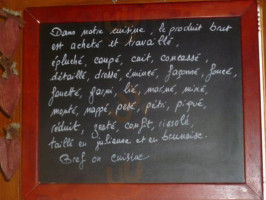 Dans notre cuisine, le produit brut
est acheté et travaillé,
épluché, coupé, cuit, concassé,
détaillé, dressé, émincé, façonné,
fouetté, garni, lié, mariné, mixé,
monté, nappé, pesé, pétri, piqué,
réduit, confit, rissolé,
taillé en julienne et en brunoise.
Bref on cuisine